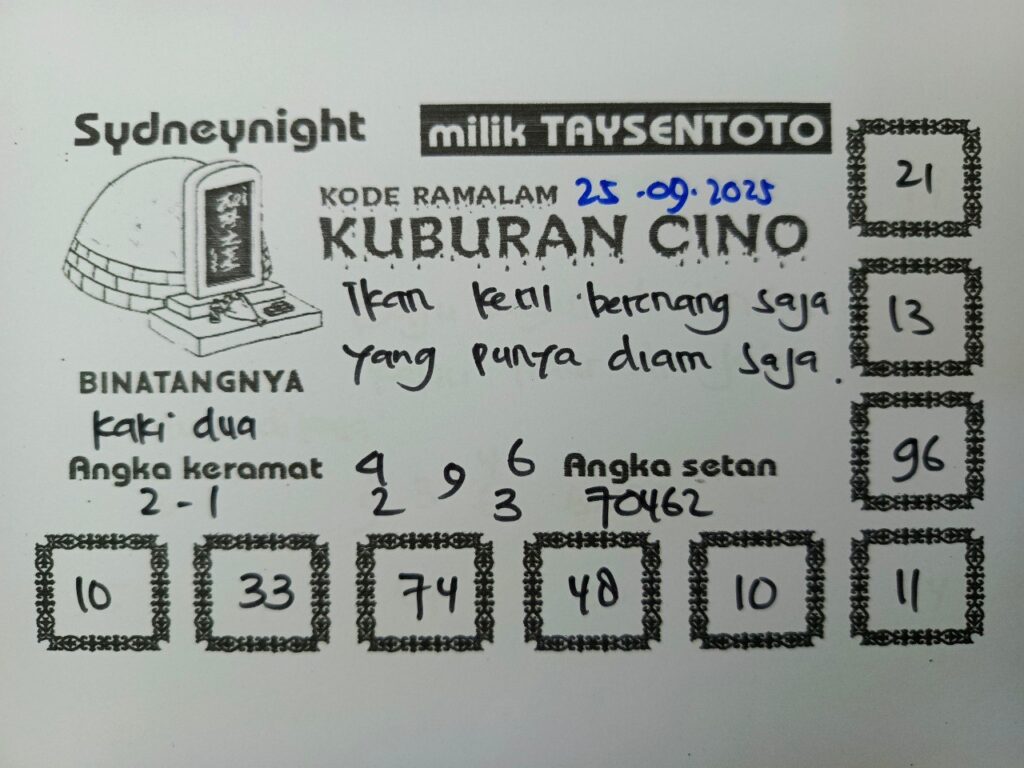 Sydneynight
milik TAYSENTOTO
KODE RAMALAM 25.09.2025
KUBURAN CINO
Ikan kecil berenang saja
yang punya diam saja.
BINATANGNYA
kaki dua
Angka keramat
2-1
4 6
9
2 3
Angka setan
70462
21
13
96
10 33 74 48 10 11